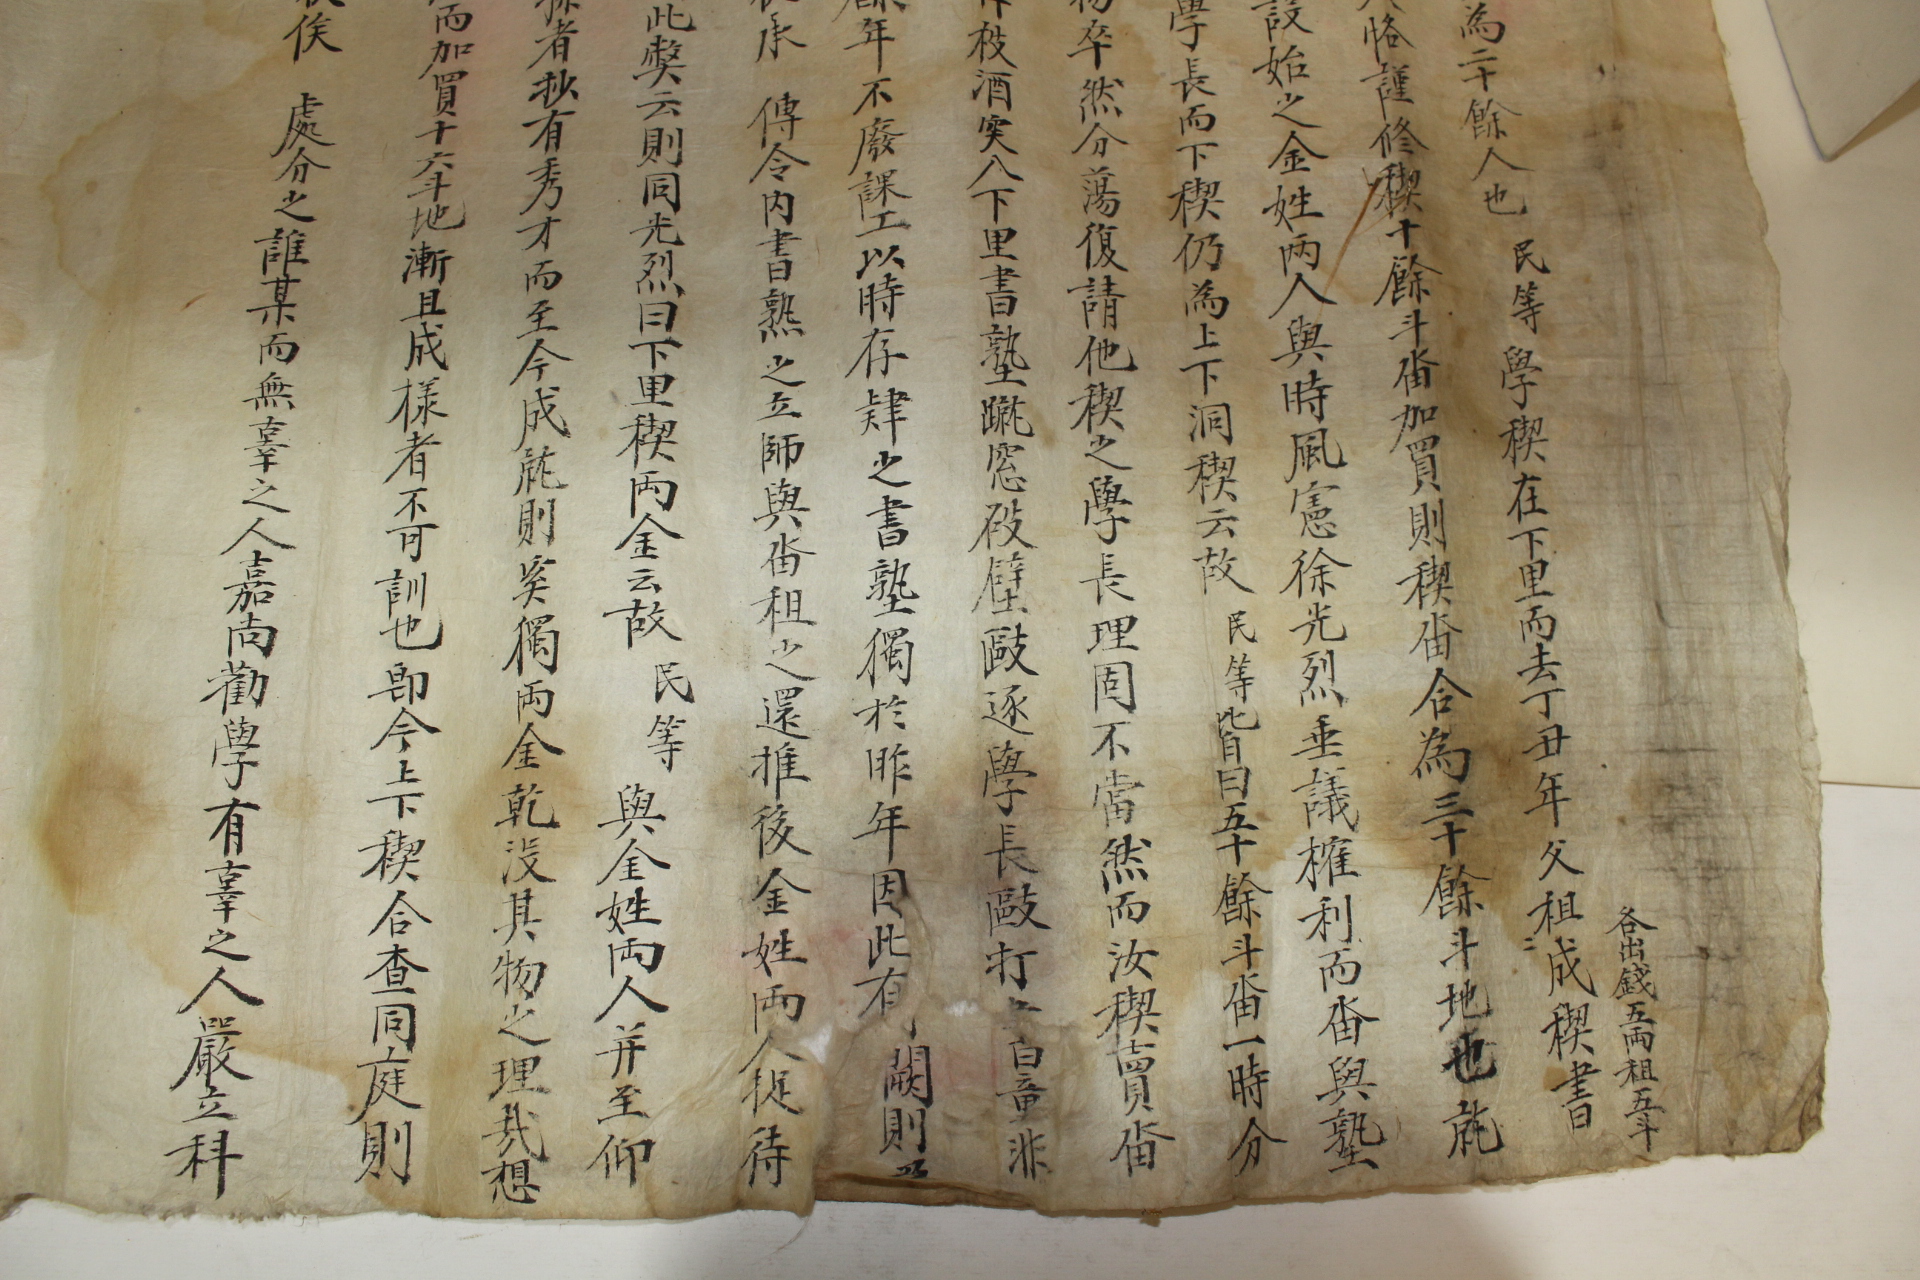 各出錢五両租五斗
為二十餘人也 民等 學稧在下里而去丁丑年父祖成稧書
恪謹修稧十餘斗畓加買則稧畓合為三十餘斗地也能
設始之金姓両人與時風憲徐光烈垂議榷利而畓與塾
學長而下稧仍為上下洞稧云故 民等皆曰五十餘斗畓一時分
物卒然分蕩復請他稧之學長理固不當然而汝稧賣畓
枝酒突入下里書塾蹴窓破壁敺逐學長敺打 童非
餘年不廢課工以時存肄之書塾獨於昨年因此有 闕則
承 傳令内書塾之立師與畓租之還推後金姓両人捉待
此獘云則同光烈曰下里稧両金云故 民等 與金姓両人并至仰
孫者抄有秀才而至今成能則奚獨両金乾没其物之理哉想
而加買十六斗地漸且成樣者不可訓也即今上下稧合查同庭則
俟 處分之誰某而無辜之人嘉尚勸學有辜之人嚴立科